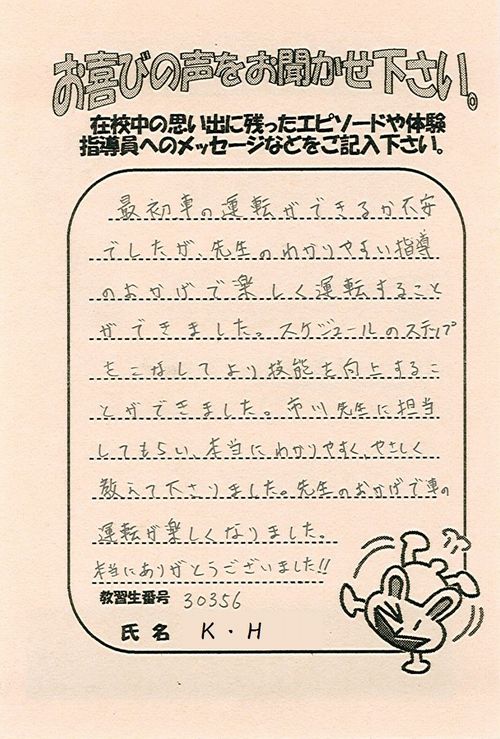 お喜びの声をお聞かせ下さい。
在校中の思い出に残ったエピソードや体験
指導員へのメッセージなどをご記入下さい。
最初車の運転ができるか不安
でしたが、先生のわかりやすい指導
のおかげで楽しく運転すること
ができました。スケジュールのステップ
をこなしてより技能を向上するこ
とができました。市川先生に担当
してもらい、本当にわかりやすく、やさしく
教えて下さりました。先生のおかげで車の
運転が楽しくなりました。
本当にありがとうございました!!
教習生番号 30356
氏名 K・H